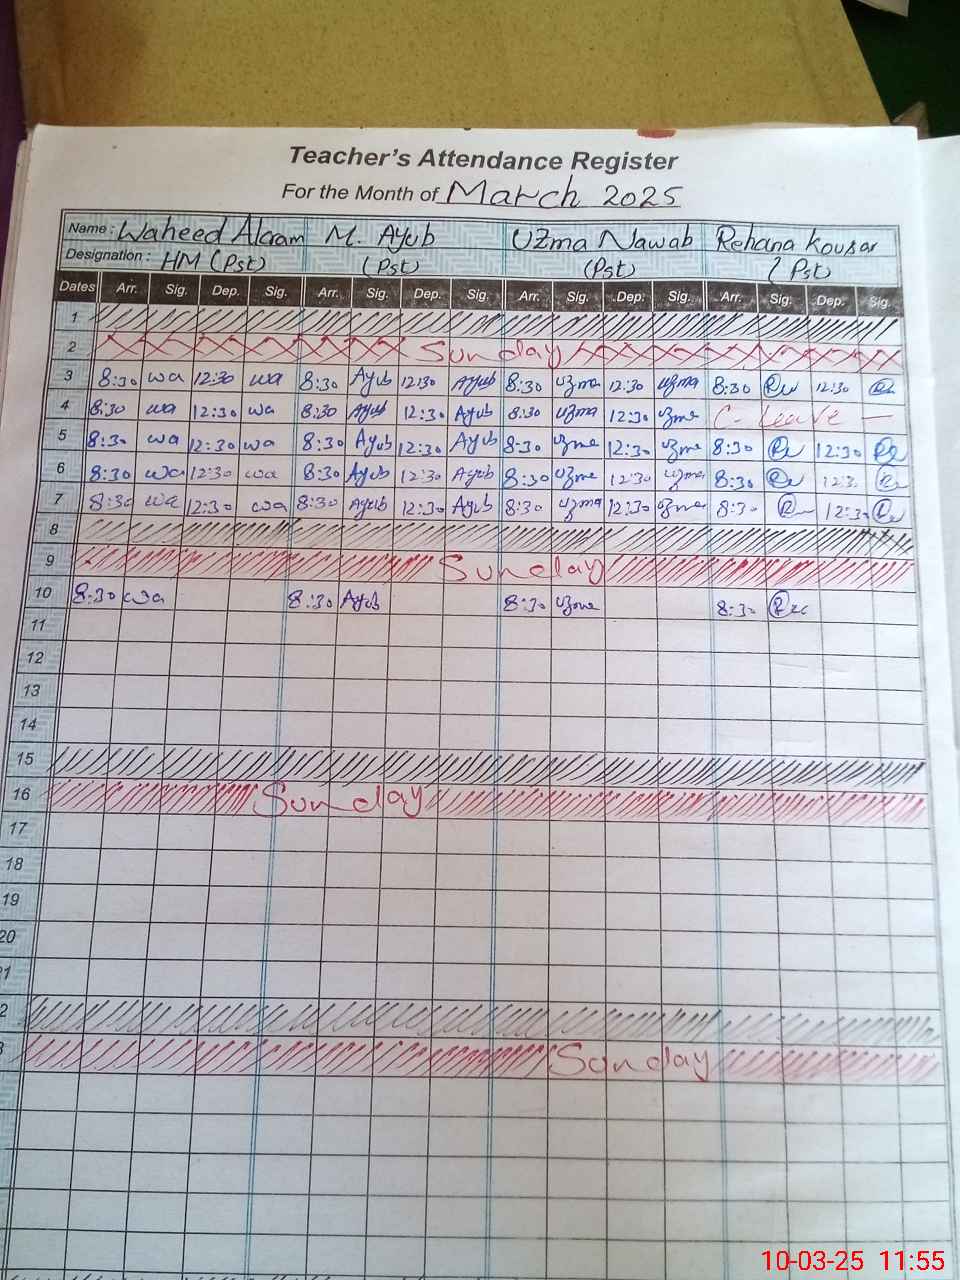 Teacher's Attendance Register
For the Month of March 2025
Name: Waheed Alam M. Ayub Uzma Nawab Rehana Kousar
Designation: HM (Pst) (Pst) (Pst) (Pst)
Dates Arr. Sig. Dep. Sig. Arr. Sig. Dep. Sig. Arr. Sig. Dep. Sig. Arr. Sig. Dep. Sig.
1
2 Sunday
3 8:30 wa 12:30 wa 8:30 Ayub 12:30 Ayub 8:30 uzma 12:30 uzma 8:30 12:30
4 8:30 wa 12:30 wa 8:30 Ayub 12:30 Ayub 8:30 uzma 12:30 uzma C-Leave —
5 8:30 wa 12:30 wa 8:30 Ayub 12:30 Ayub 8:30 uzma 12:30 uzma 8:30 12:30
6 8:30 wa 12:30 wa 8:30 Ayub 12:30 Ayub 8:30 uzma 12:30 uzma 8:30 12:3
7 8:30 wa 12:30 wa 8:30 Ayub 12:30 Ayub 8:30 uzma 12:30 uzma 8:30 12:30
8
9 Sunday
10 8:30 wa 8:30 Ayub 8:30 uzma 8:30
11
12
13
14
15
16 Sunday
17
18
19
20
21
2
3 Sunday
10-03-25 11:55